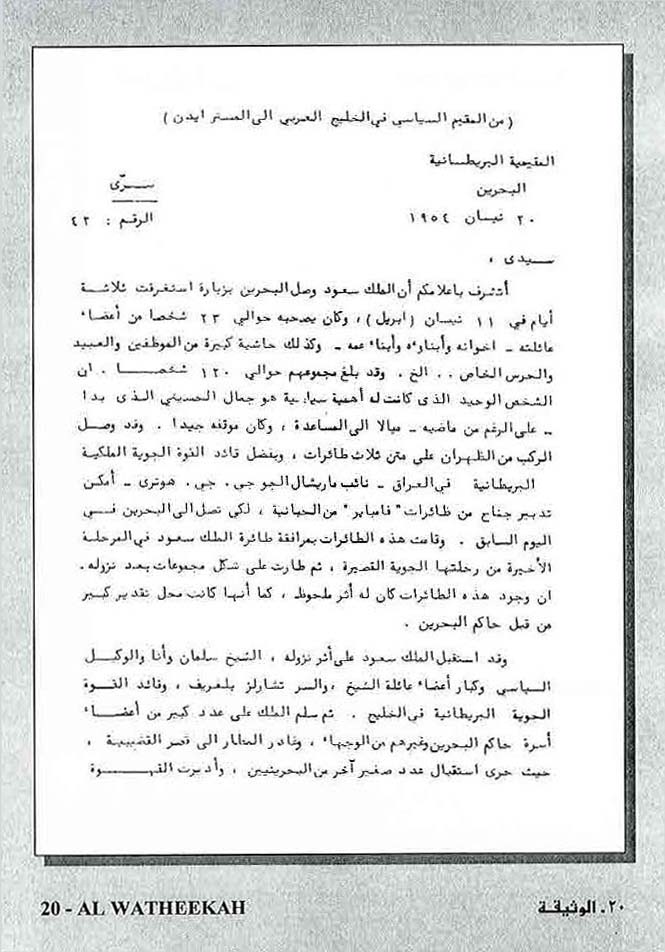 ( من المقيم السياسي في الخليج العربي الى المستر ايدن )
المقيمية البريطانية
البحرين
سـرّى
٢٠ نيسان ١٩٥٤
الرقم : ٤٢
سـيدى ،
أتشرف باعلامكم أن الملك سعود وصل البحرين بزيارة استغرقت ثلاثـة
أيام في ١١ نيسان (ابريل) ، وكان يصحبه حوالي ٢٣ شخصا من أعضاء
عائلته ــ اخوانه وأبناءه وأبناء عمه ــ وكذلك حاشية كبيرة من الموظفين والعبيد
والحرس الخاص . . الخ . وقد بلغ مجموعهم حوالي ١٢٠ شخصـا . ان
الشخص الوحيد الذى كانت له أهمية سياسية هو جمال الحسيني الـذى بـدا
ــ على الرغم من ماضيه ــ ميالا الى المساعدة ، وكان موقفه جيدا . وقد وصـل
الركب من الظهران على متن ثلاث طائرات ، وبفضل قائد القوة الجوية الملكية
البريطانية في العراق ــ نائب ماريشال الجو جي . جي . هوترى ــ أمكن
تدبير جناح من طائرات " فامباير " من الحبانية ، لكي تصل الى البحرين فـي
اليوم السابق . وقامت هذه الطائرات بمرافقة طائرة الملك سعود في المرحلة
الأخيرة من رحلتها الجوية القصيرة ، ثم طارت على شكل مجموعات بعد نزوله .
ان وجود هذه الطائرات كان له أثر ملحوظ ، كما أنها كانت محل تقدير كبير
من قبل حاكم البحرين .
وقد استقبل الملك سعود على أثر نزوله ، الشيخ سلمان وأنا والوكيـل
السياسي وكبار أعضاء عائلة الشيخ ، والسر تشارلز بلغريف ، وقائد القـوة
الجوية البريطانية في الخليج . ثم سلم الملك على عدد كبير من أعضـاء
أسرة حاكم البحرين وغيرهم من الوجهاء ، وغادر المطار الى قصر القضيبية ،
حيث جرى استقبال عدد صغير آخر من البحرينيين ، وأديرت القهـوة
20 - AL WATHEEKAH
٢٠ . الوثيقـة